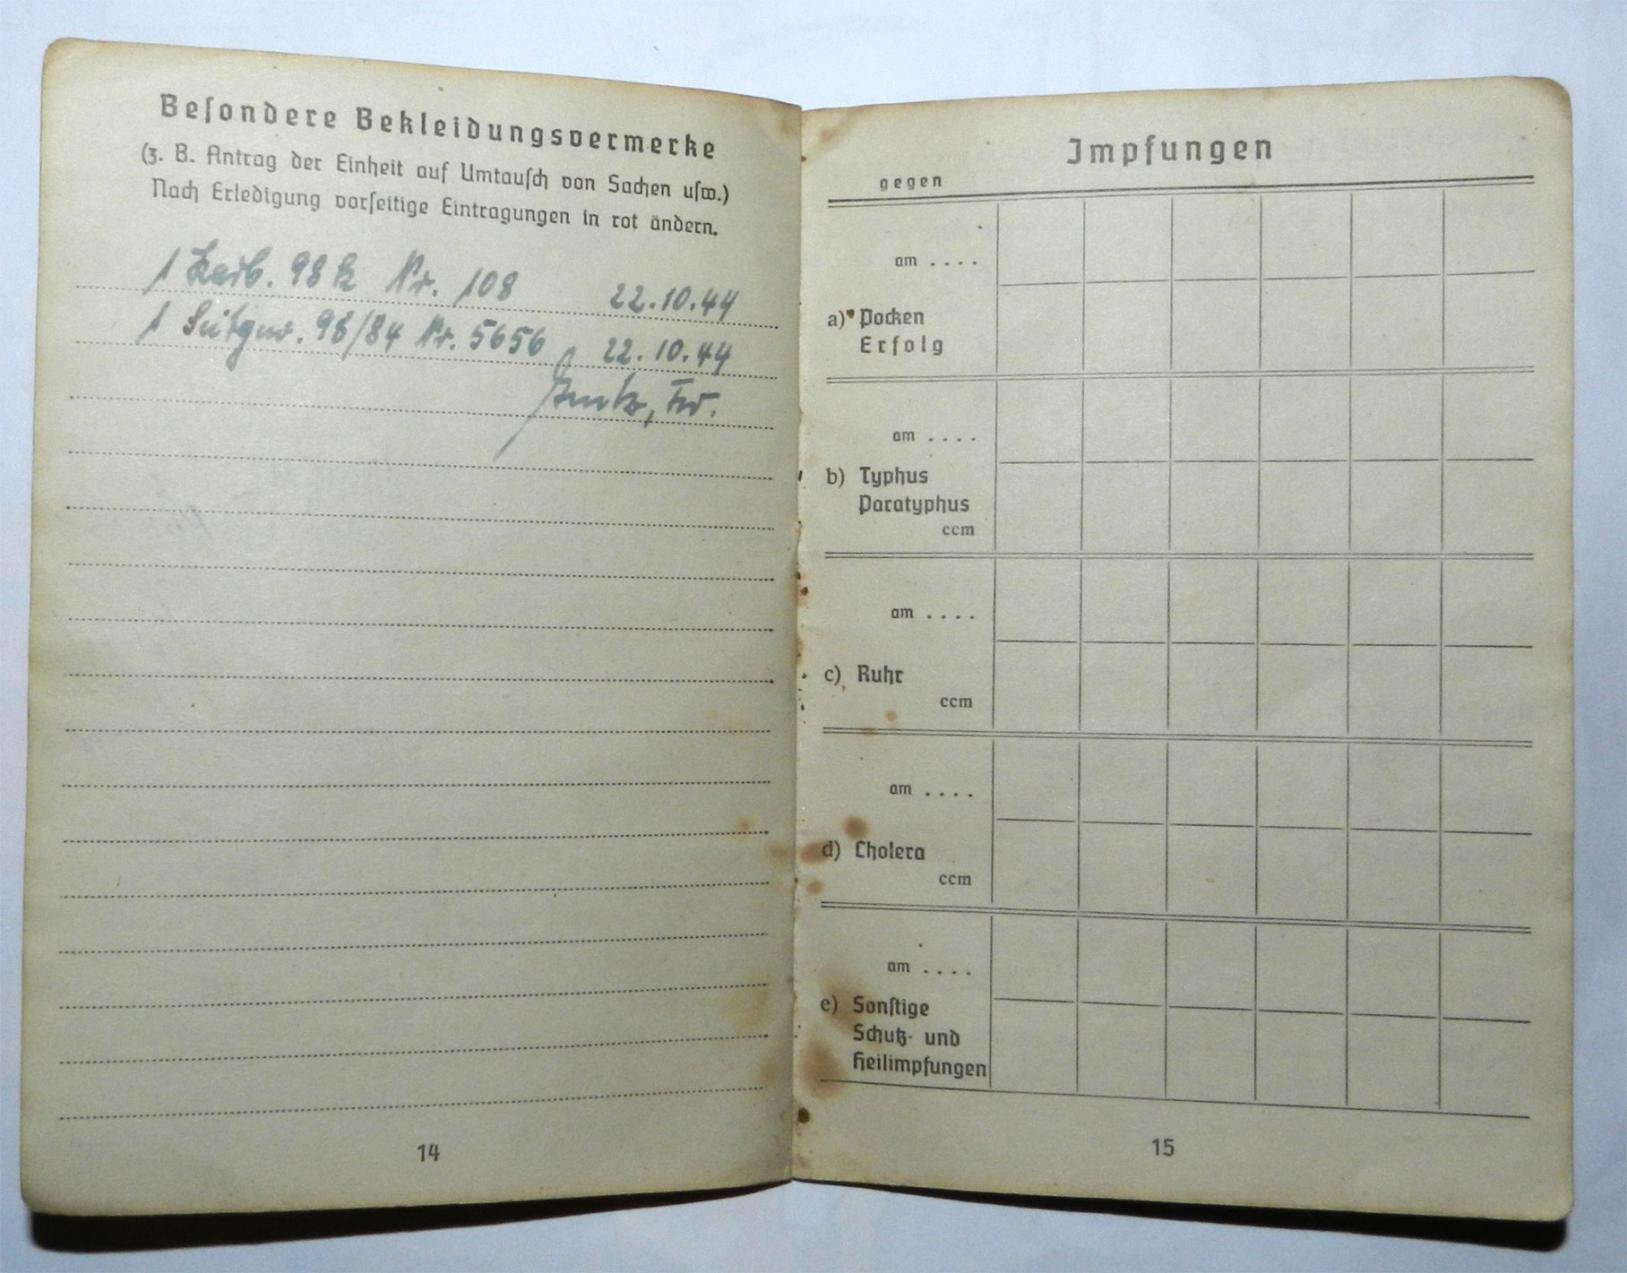 Besondere Bekleidungsvermerke
(z. B. Antrag der Einheit auf Umtausch von Sachen usw.)
Nach Erledigung vorseitige Eintragungen in rot ändern.
1 Karb. 98 k Nr. 108 22.10.44
1 Seitgw. 98/84 Nr. 5656 22.10.44
14
Impfungen
gegen
am ....
a) Pocken
Erfolg
am ....
b) Typhus
Paratyphus
ccm
am ....
c) Ruhr
ccm
am ....
d) Cholera
ccm
am ....
e) Sonstige
Schutz- und
Heilimpfungen
15